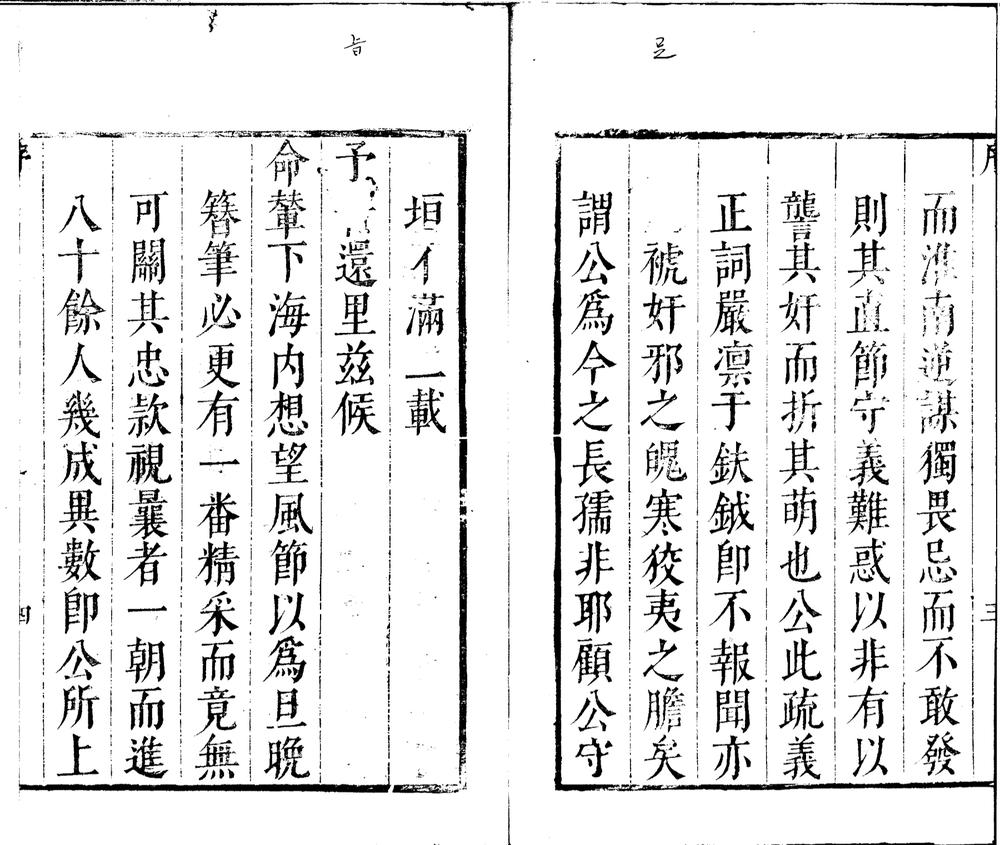 足
而淮南逆謀獨畏忌而不敢發
則其直節守義難惑以非有以
讋其奸而折其萌也公此疏義
正詞嚴凛于鈇鉞卽不報聞亦
褫奸邪之魄寒狡夷之膽矣
謂公爲今之長孺非耶顧公守
三
旨
垣不滿二載
予告還里兹候
命輦下海内想望風節以爲旦晩
簪筆必更有一番精采而竟無
可關其忠款視曩者一朝而進
八十餘人幾成異數卽公所上
四